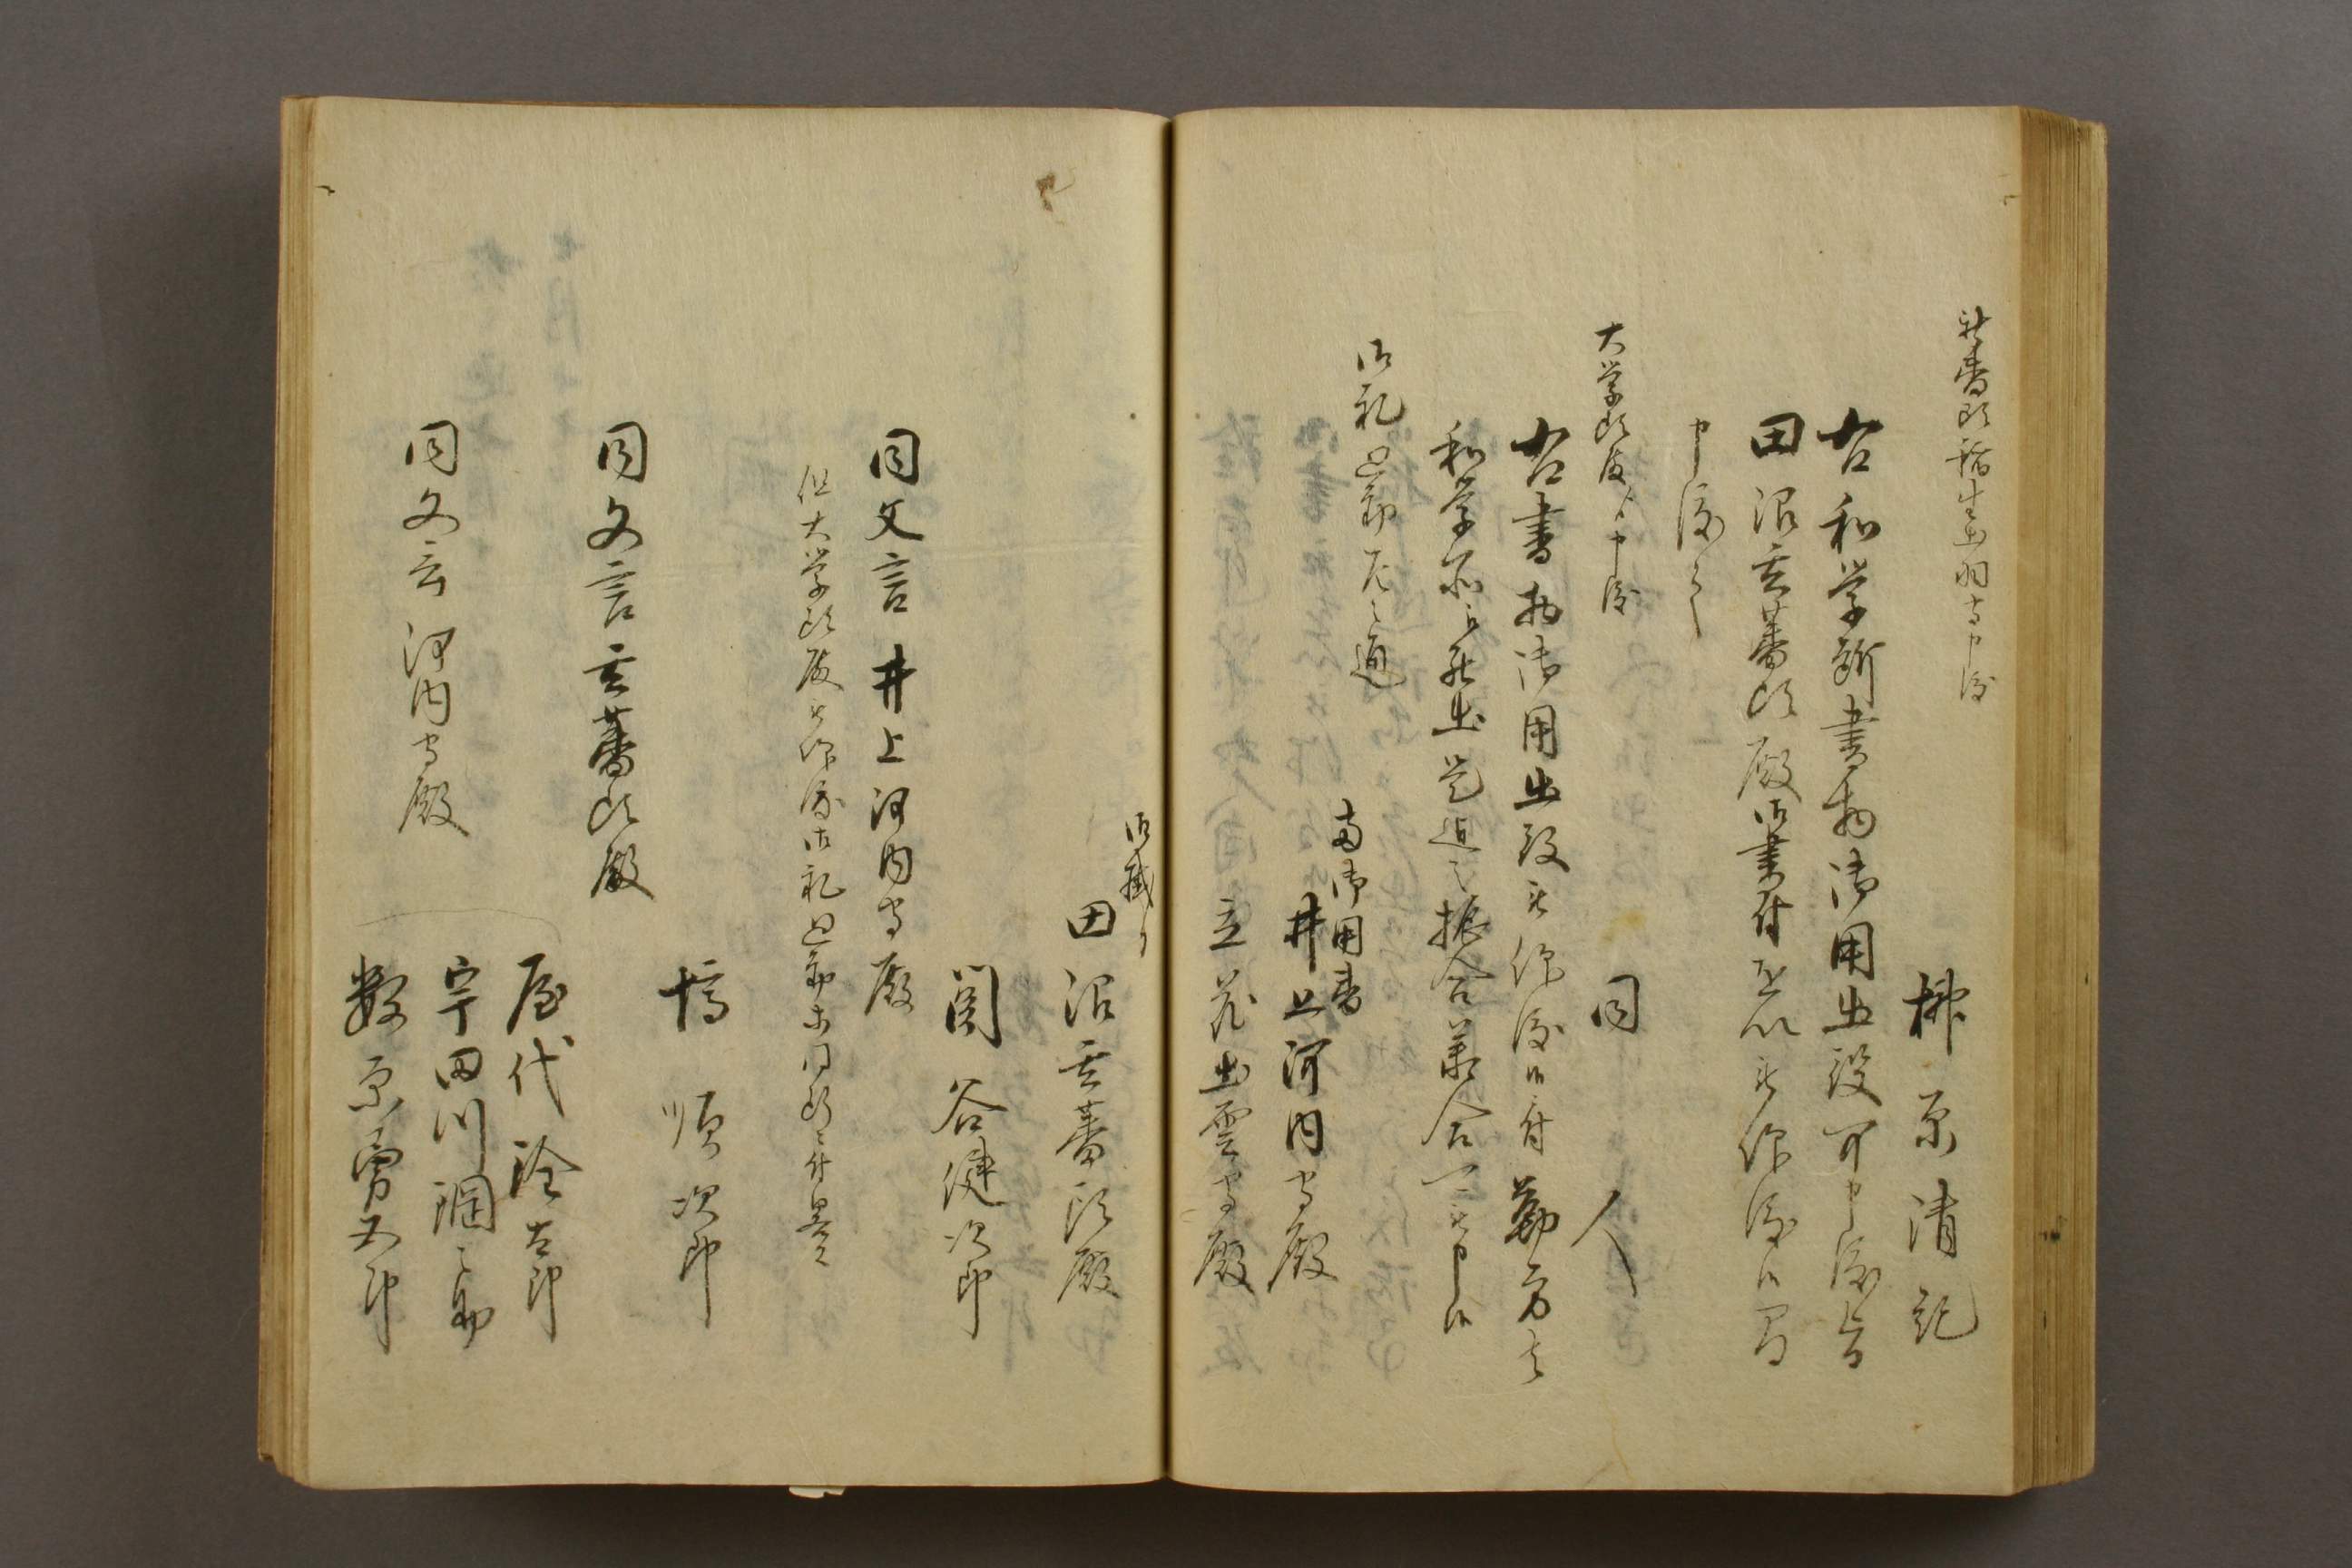 新番頭稲生出羽守申渡
榊原清記
右和学所書物御用出役可申渡旨
田沼玄蕃頭殿御書付を以被仰渡候間
申渡之
大学頭殿より申渡
同人
右書物御用出役被仰渡候付勤方之
和学所江罷出是迄之振合兼合可被申候
御礼廻勤左之通
両御用番
井上河内守殿
立花出雲守殿
御掛り
田沼玄蕃頭殿
関谷健次郎
同文言 井上河内守殿
但大学頭殿被仰渡御礼廻勤等同断ニ付畧之
塙 順次郎
同文言玄蕃頭殿
屋代詮太郎
同文言 河内守殿
宇田川調之助
数原勇五郎